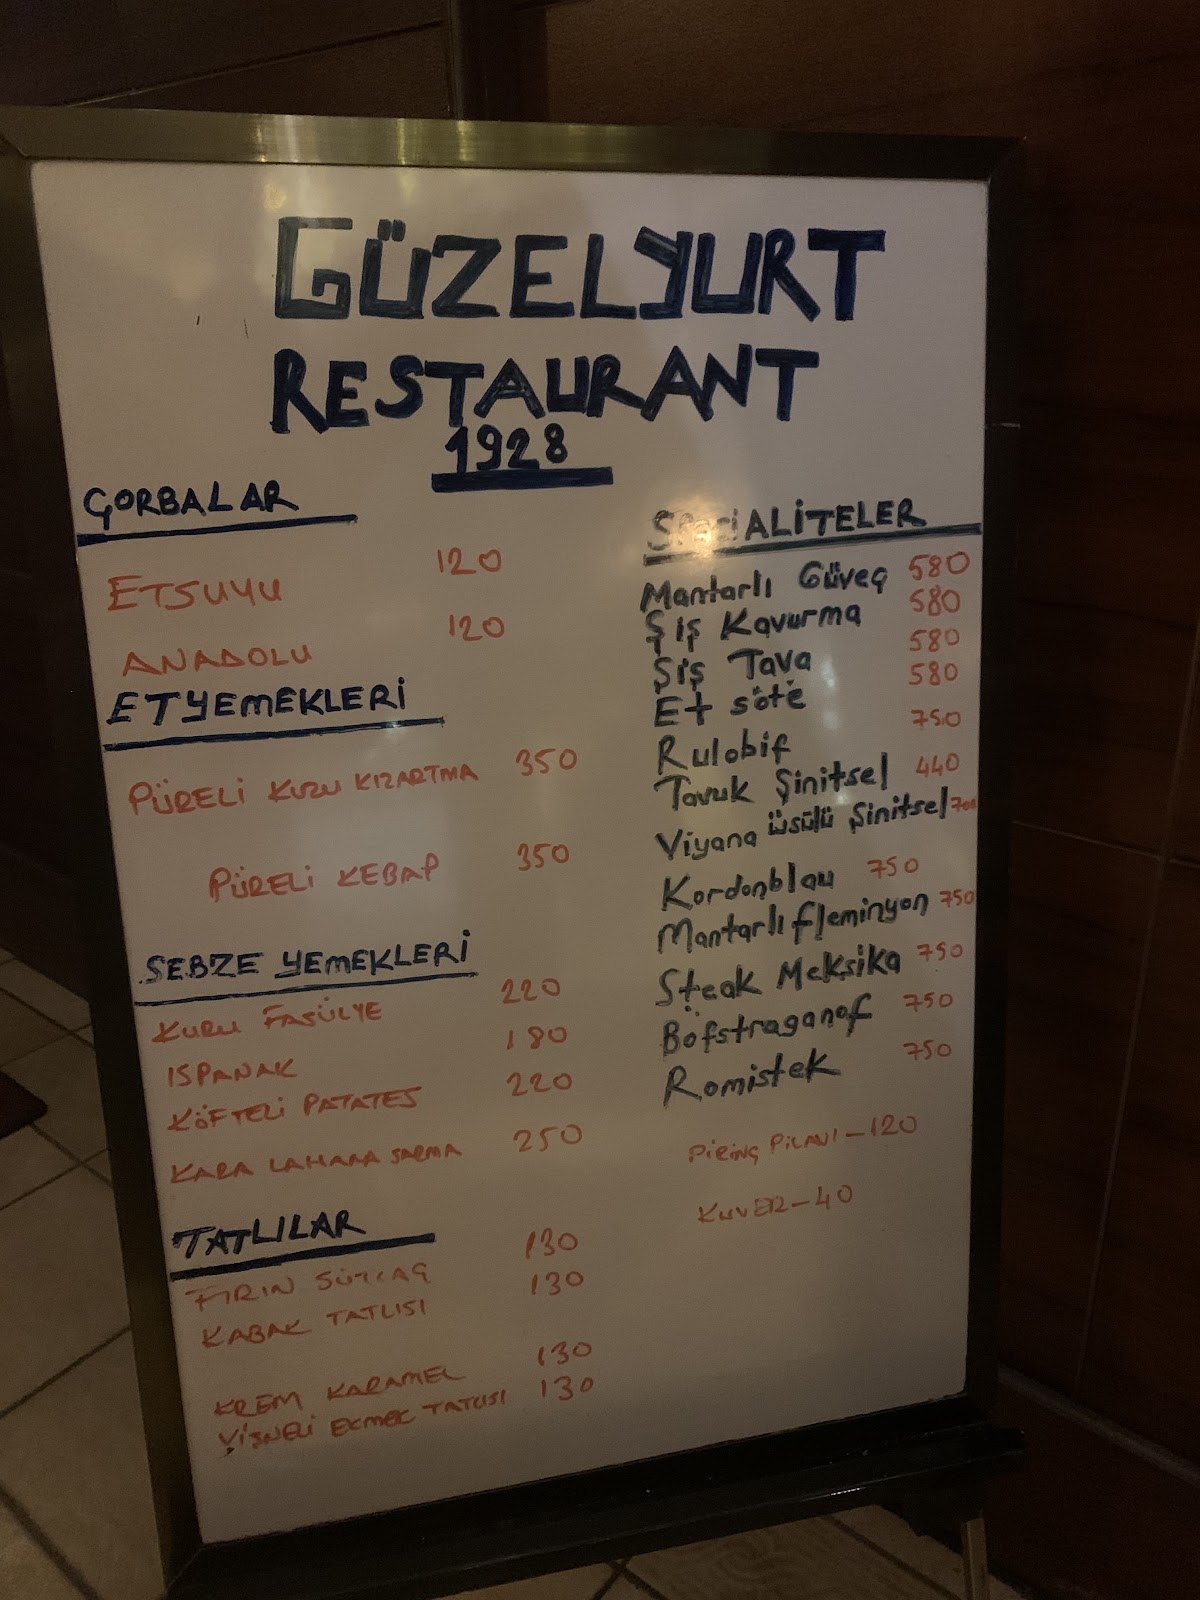 GÜZELYURT
RESTAURANT
1928
ÇORBALAR
ETSUYU 120
ANADOLU 120
ETYEMEKLERİ
PÜRELİ KUZU KIZARTMA 350
PÜRELİ KEBAP 350
SEBZE YEMEKLERİ
KURU FASÜLYE 220
ISPANAK 180
KÖFTELİ PATATES 220
KARA LAHANA SARMA 250
TATLILAR
FIRIN SÜTLAÇ 130
KABAK TATLISI 130
KREM KARAMEL 130
VİŞNELİ EKMEK TATLISI 130
SPECİALİTELER
Mantarlı Güveç 580
Şiş Kavurma 580
Şiş Tava 580
Et söte 580
Rulobif 750
Tavuk Şinitsel 440
Viyana üsülü Şinitsel 700
Kordonblau 750
Mantarlı fleminyon 750
Steak Meksika 750
Böfstraganof 750
Romistek 750
PİRİNÇ PİLAVI - 120
KUVER - 40